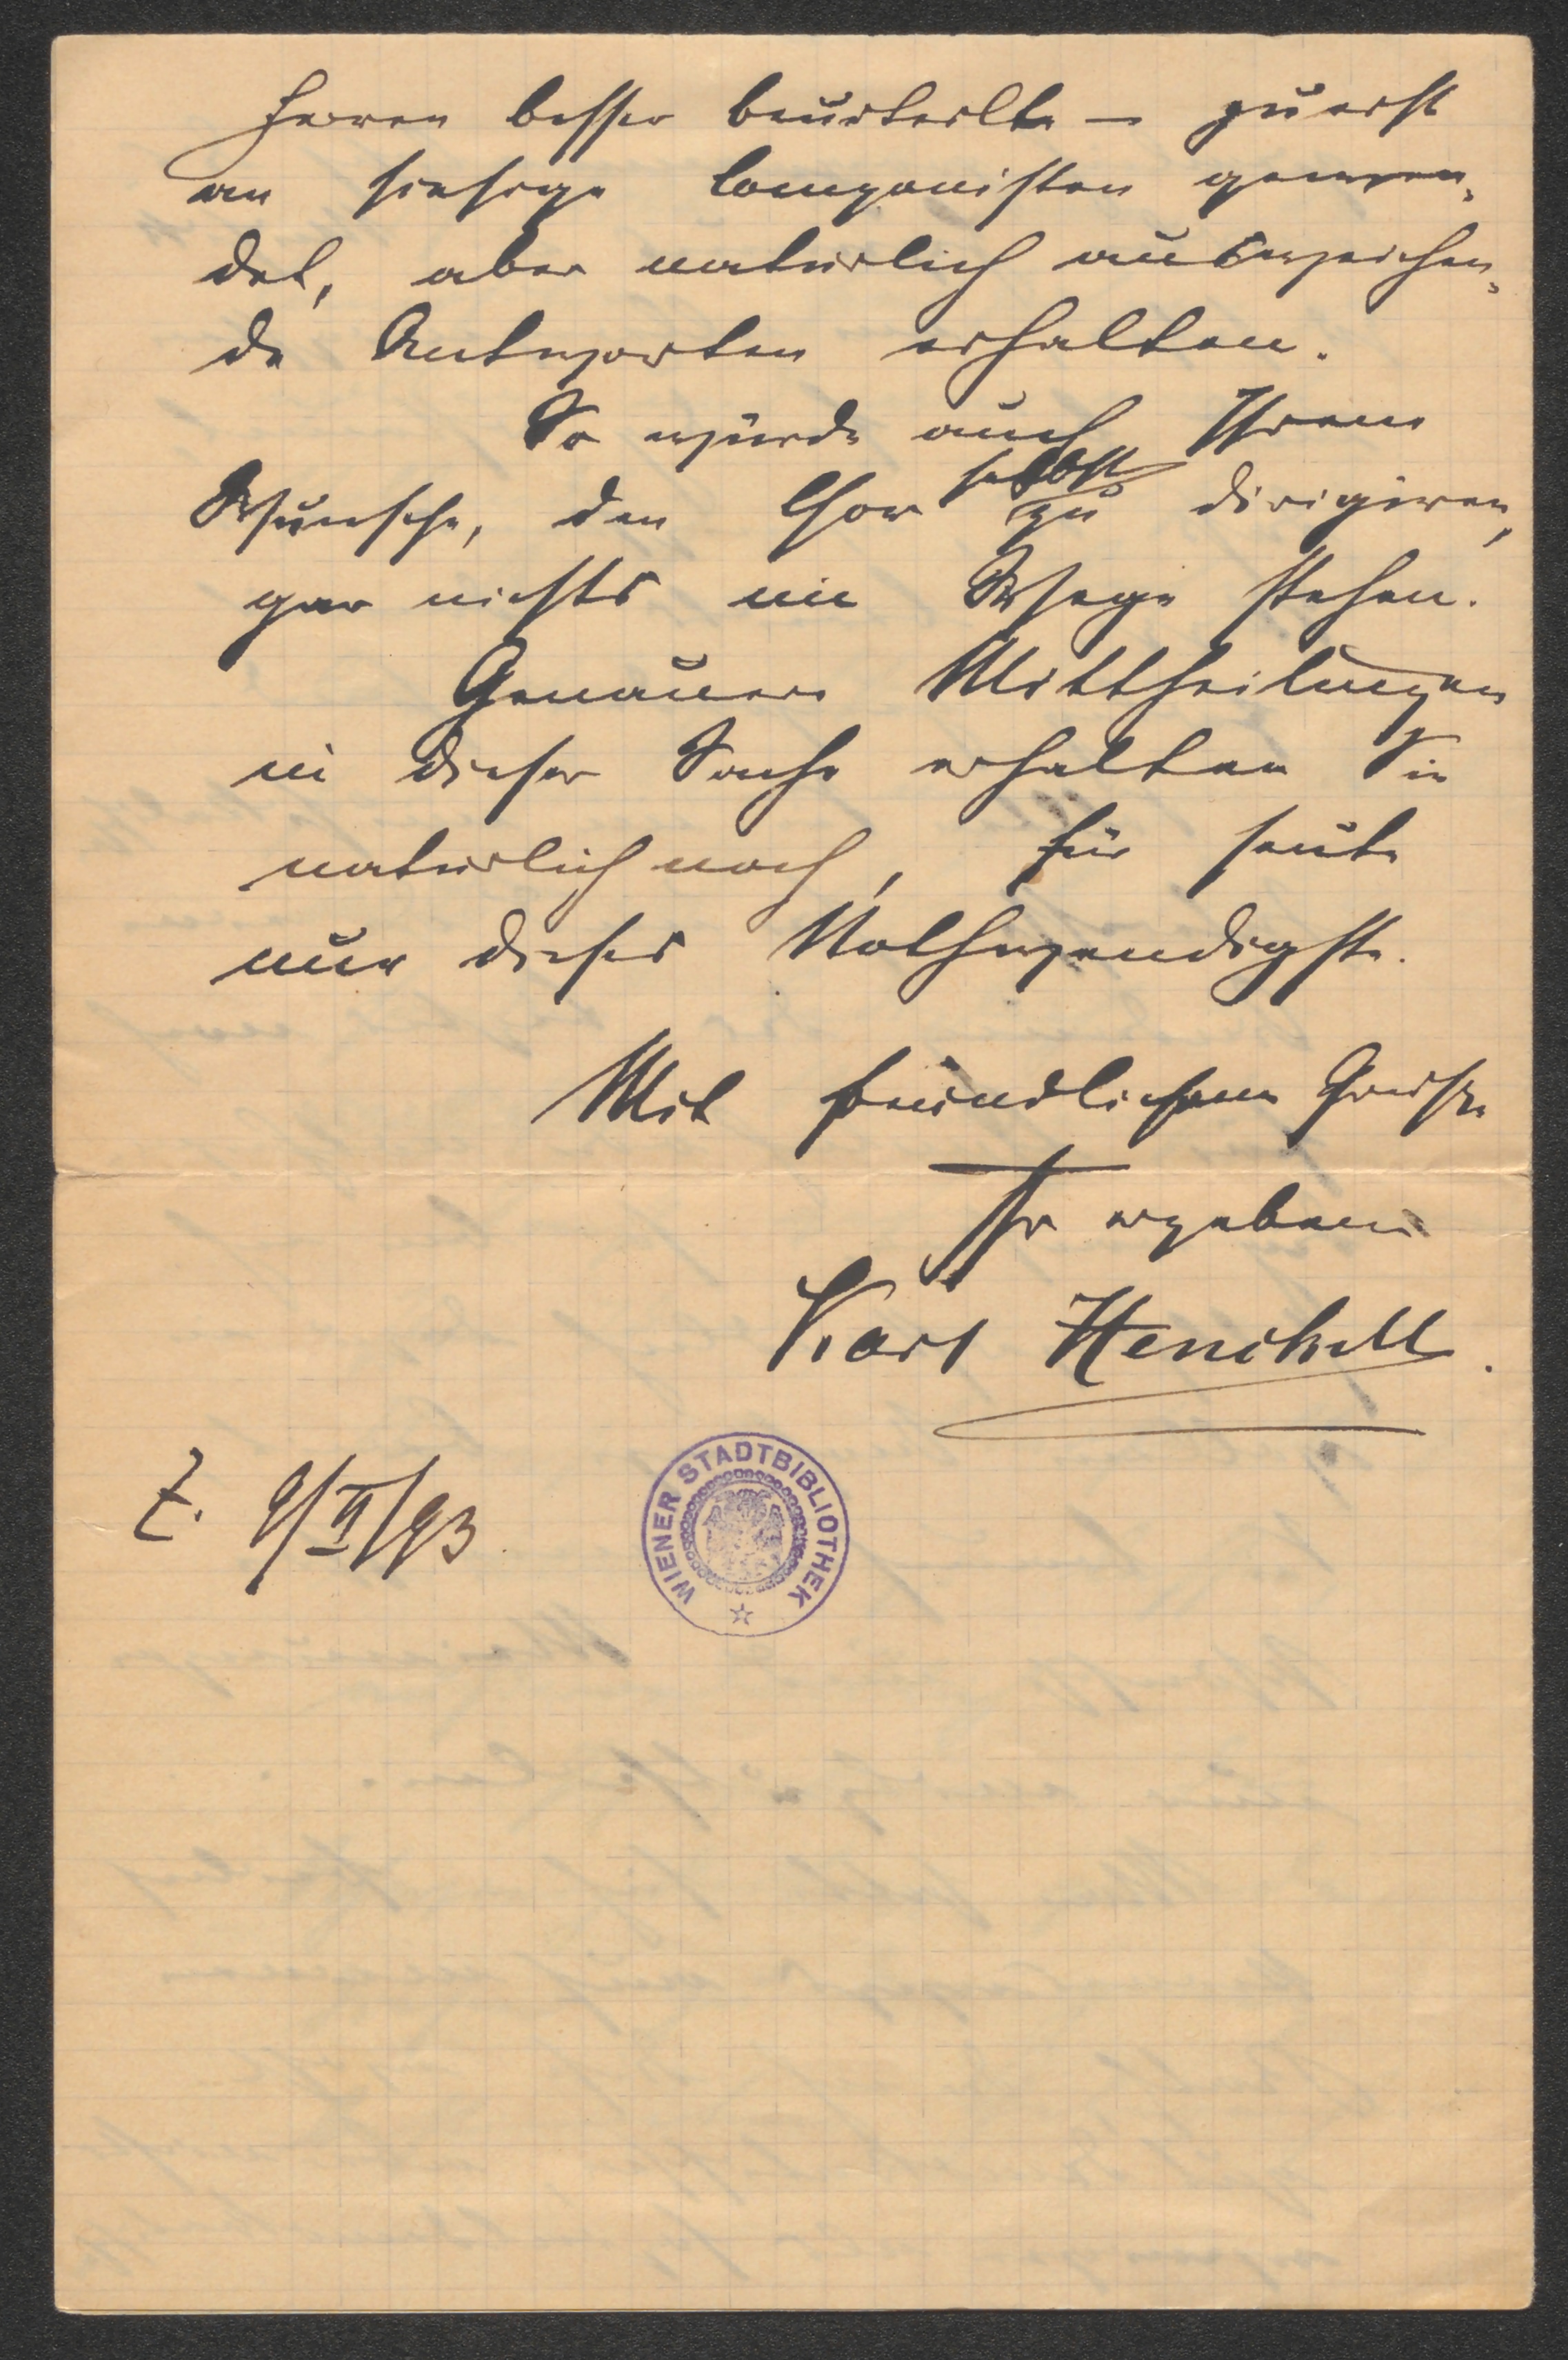 Herren besser beurteilte – zuerst
an hiesige Componisten gewen-
det, aber natürlich ausweichen-
de Antworten erhalten.
So würde auch Ihrem
Wunsche, den Chor selbst zu dirigiren,
gar nichts im Wege stehen.
Genauere Mittheilungen
in dieser Sache erhalten Sie
natürlich noch, für heute
nur dieses Nothwendigste.
Mit freundlichem Gruße
Ihr ergebener
Karl Henckell.
Z. 9/II/93.
WIENER STADTBIBLIOTHEK